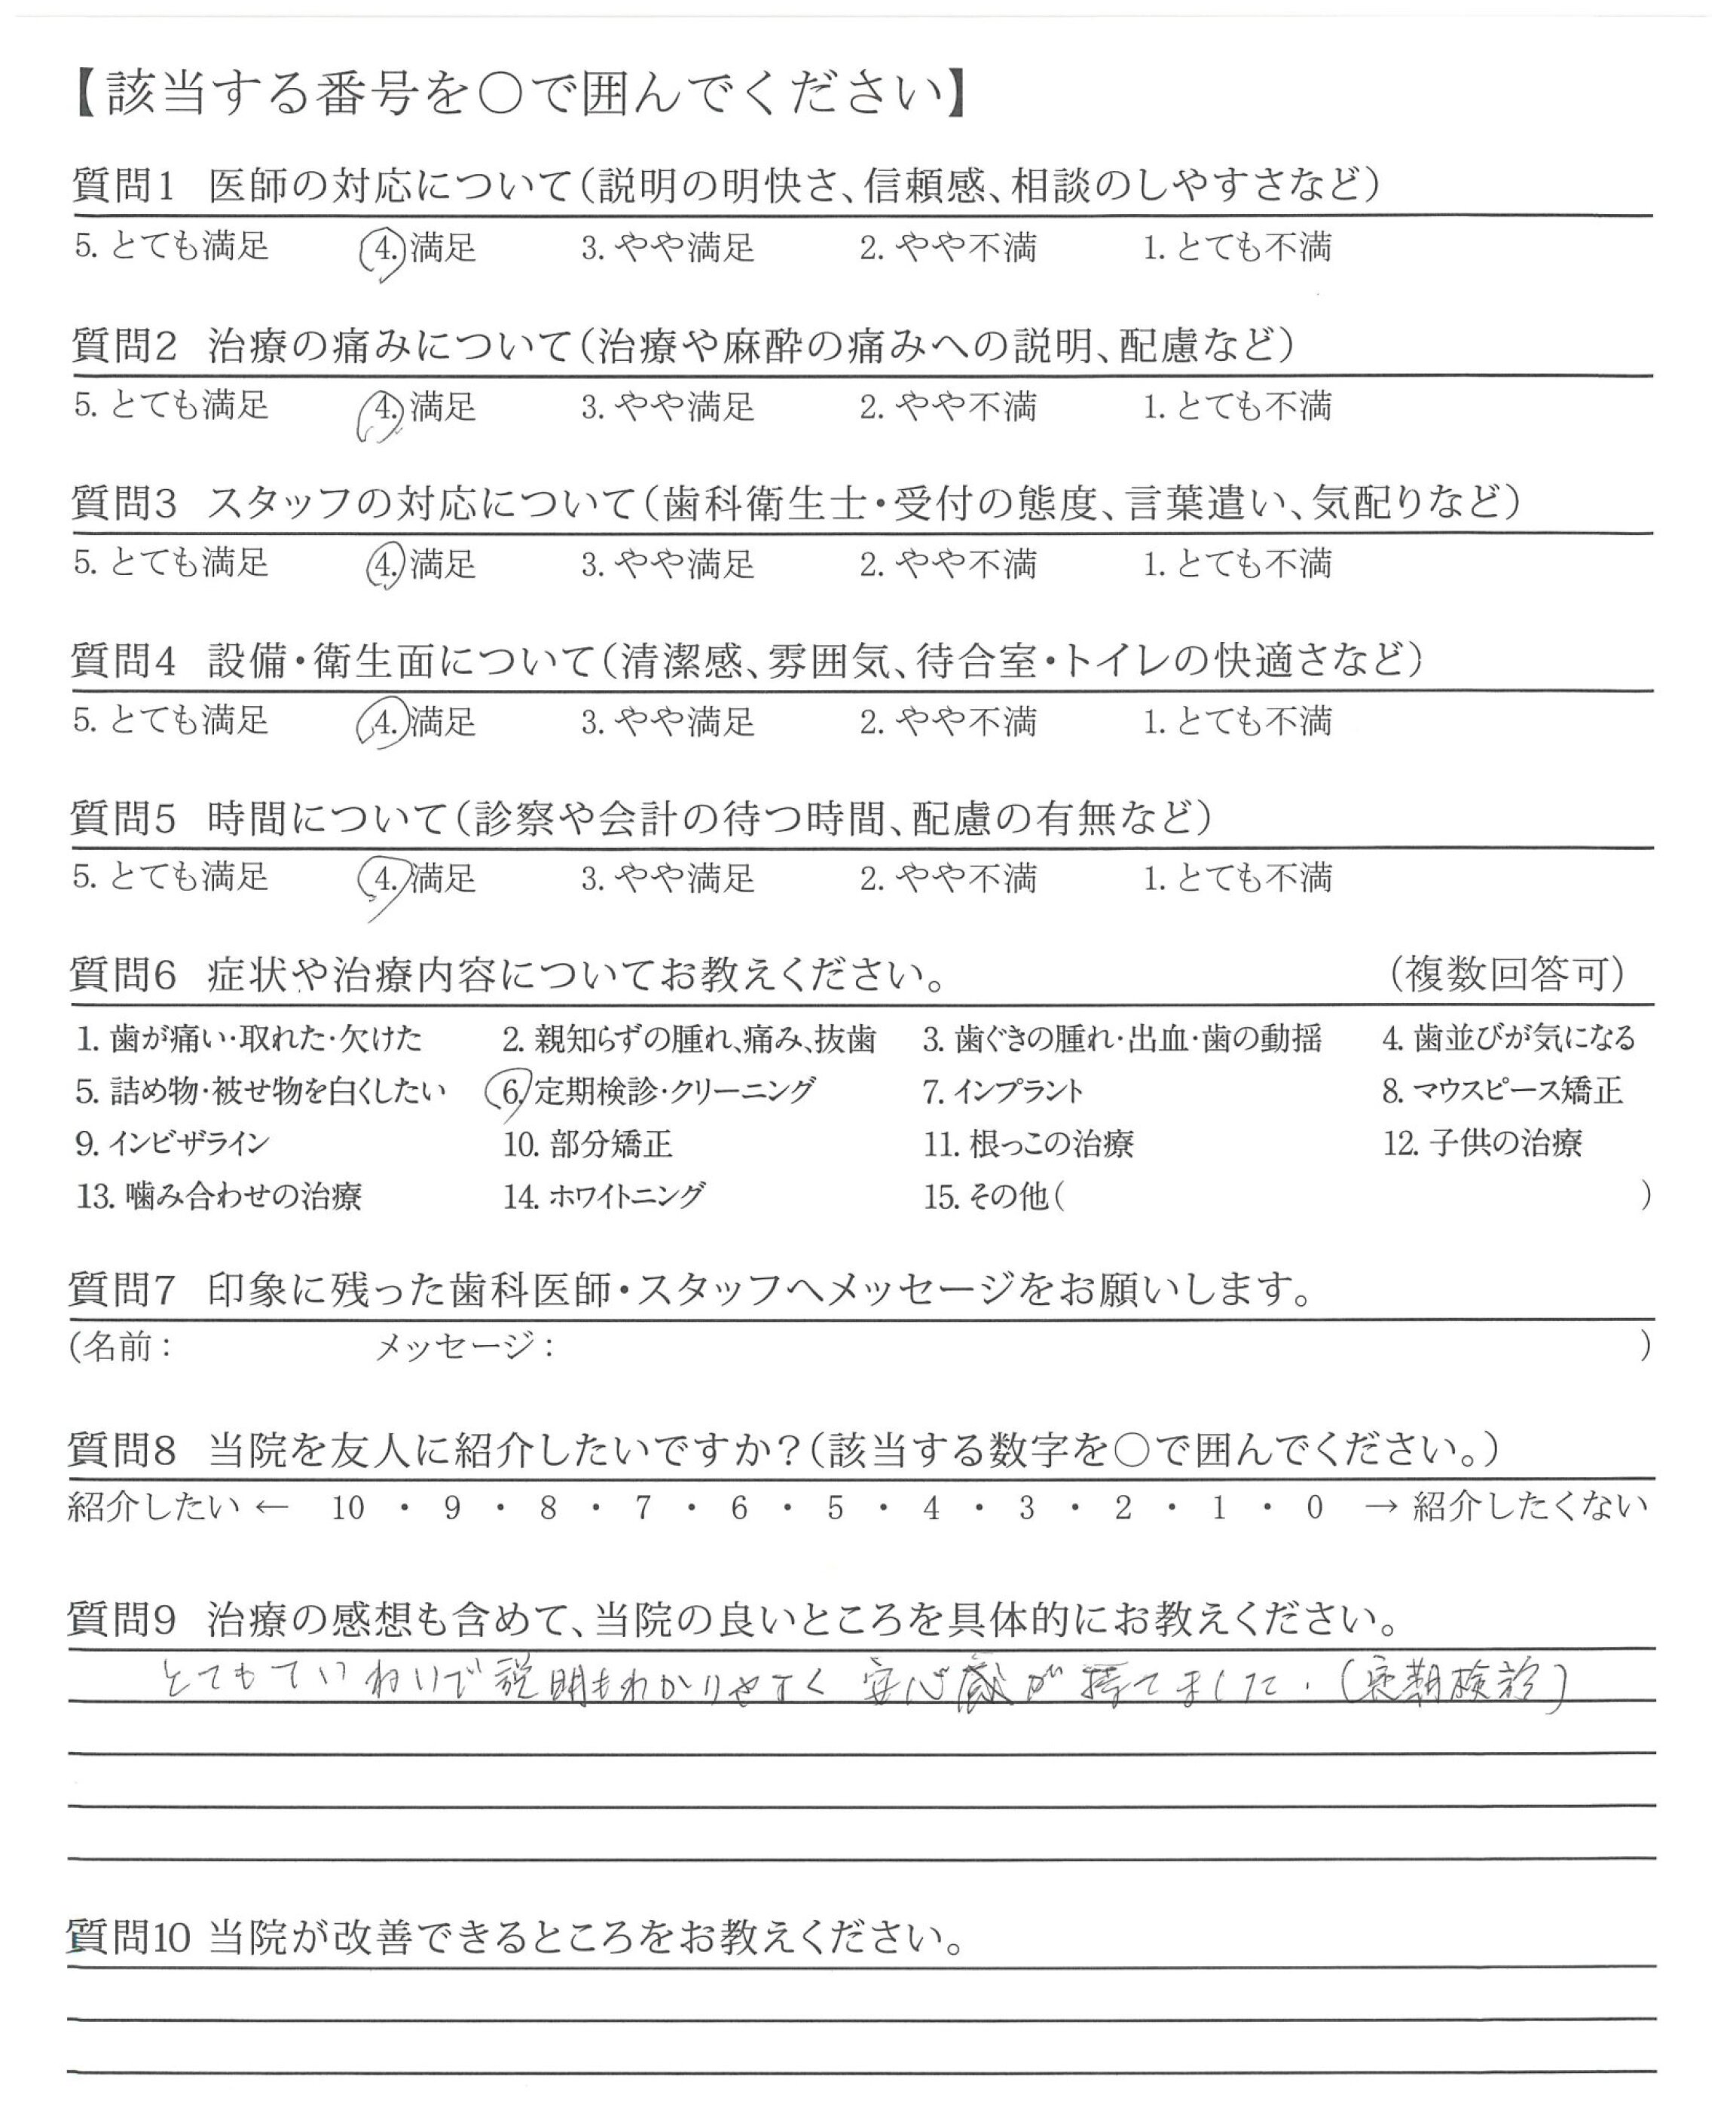 【該当する番号を〇で囲んでください】
質問1 医師の対応について(説明の明快さ、信頼感、相談のしやすさなど)
5. とても満足 4. 満足 3. やや満足 2. やや不満 1. とても不満
質問2 治療の痛みについて(治療や麻酔の痛みへの説明、配慮など)
5. とても満足 4. 満足 3. やや満足 2. やや不満 1. とても不満
質問3 スタッフの対応について(歯科衛生士・受付の態度、言葉遣い、気配りなど)
5. とても満足 4. 満足 3. やや満足 2. やや不満 1. とても不満
質問4 設備・衛生面について(清潔感、雰囲気、待合室・トイレの快適さなど)
5. とても満足 4. 満足 3. やや満足 2. やや不満 1. とても不満
質問5 時間について(診察や会計の待つ時間、配慮の有無など)
5. とても満足 4. 満足 3. やや満足 2. やや不満 1. とても不満
質問6 症状や治療内容についてお教えください。 (複数回答可)
1. 歯が痛い・取れた・欠けた 2. 親知らずの腫れ、痛み、抜歯 3. 歯ぐきの腫れ・出血・歯の動揺 4. 歯並びが気になる
5. 詰め物・被せ物を白くしたい 6. 定期検診・クリーニング 7. インプラント 8. マウスピース矯正
9. インビザライン 10. 部分矯正 11. 根っこの治療 12. 子供の治療
13. 噛み合わせの治療 14. ホワイトニング 15. その他( )
質問7 印象に残った歯科医師・スタッフへメッセージをお願いします。
(名前: メッセージ: )
質問8 当院を友人に紹介したいですか?(該当する数字を〇で囲んでください。)
紹介したい ← 10 ・ 9 ・ 8 ・ 7 ・ 6 ・ 5 ・ 4 ・ 3 ・ 2 ・ 1 ・ 0 → 紹介したくない
質問9 治療の感想も含めて、当院の良いところを具体的にお教えください。
とてもていねいで説明もわかりやすく 安心感が持てました.(定期検診)
質問10 当院が改善できるところをお教えください。